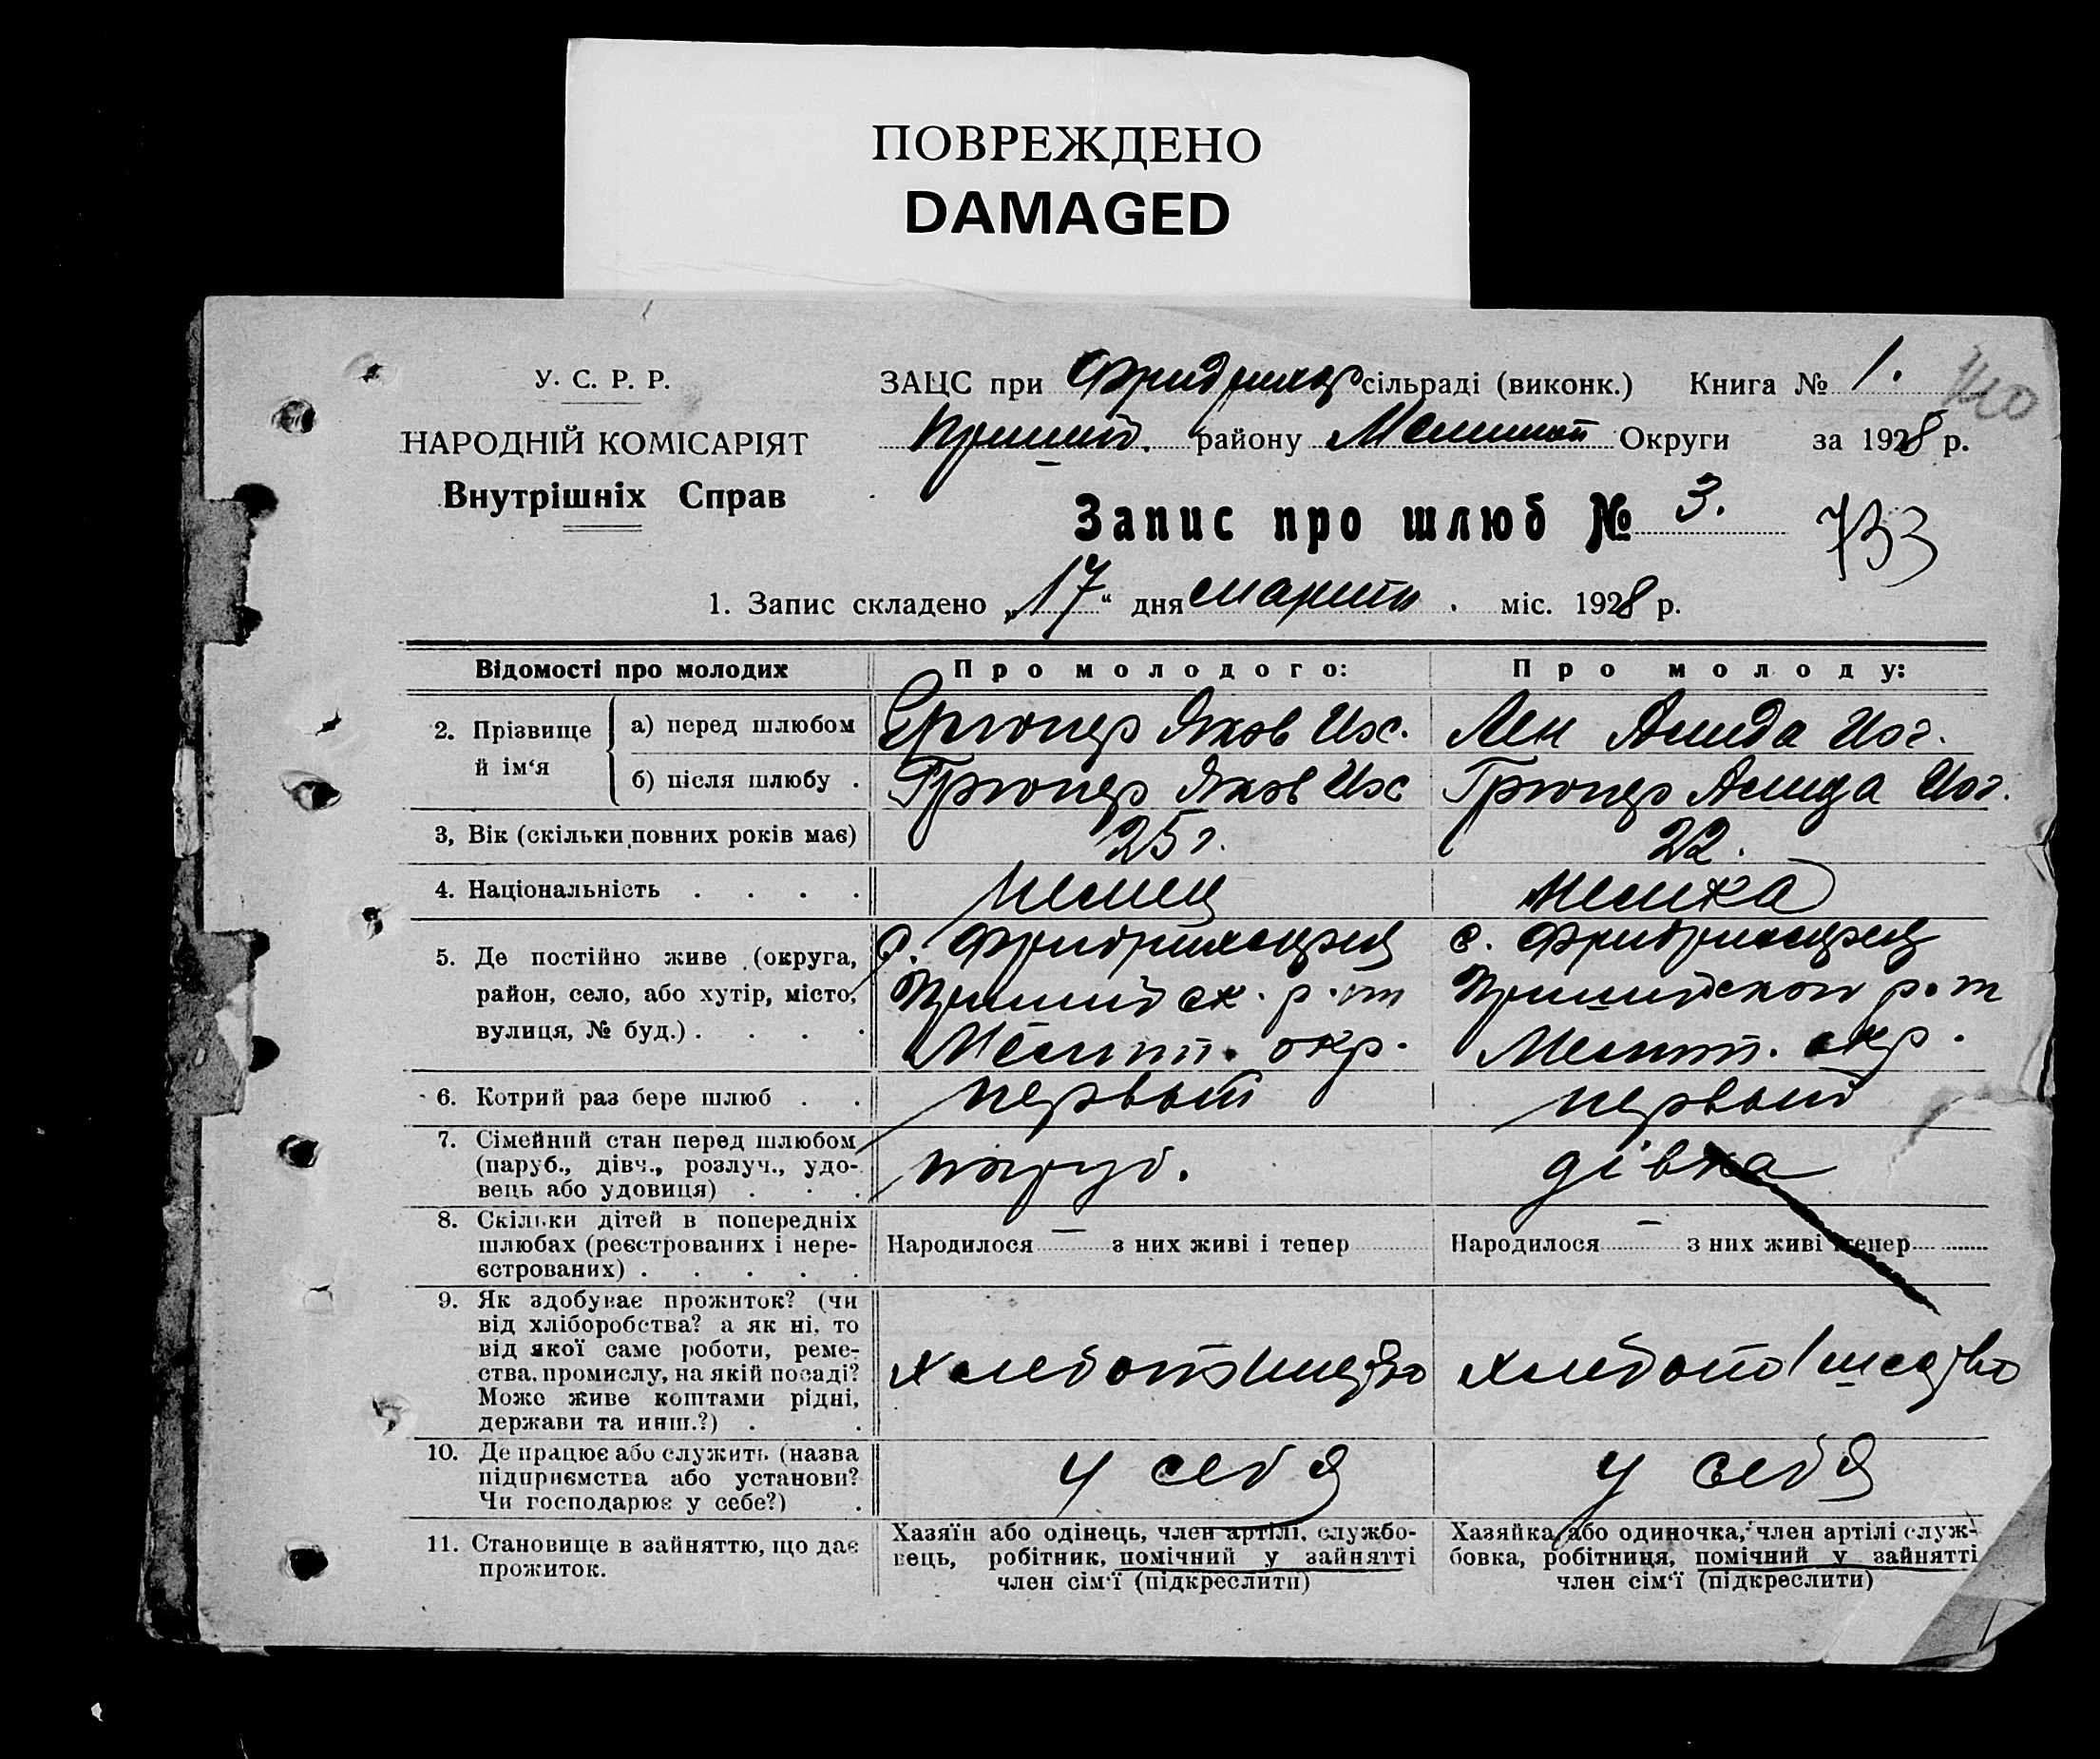 ПОВРЕЖДЕНО
DAMAGED
У. С. Р. Р.
НАРОДНІЙ КОМІСАРІЯТ
Внутрішніх Справ
ЗАЦС при сільраді (виконк.) Книга № 1.
району Округи за 1928 р.
Запис про шлюб № 3.
733
1. Запис складено „17“ дня марта міс. 1928 р.
Відомості про молодих Про молодого: Про молоду:
2. Прізвище й ім‘я
а) перед шлюбом Яков Лен Алида
б) після шлюбу Грюнер Яков Грюнер Алида
3, Вік (скільки повних років має) 25 г. 22.
4. Національність немец немка
5. Де постійно живе (округа,
район, село, або хутір, місто,
вулиця, № буд.)
окр. окр.
6. Котрий раз бере шлюб первый первый
7. Сімейний стан перед шлюбом
(паруб., дівч., розлуч., удо-
вець або удовиця)
паруб. дівка
8. Скільки дітей в попередніх
шлюбах (реєстрованих і нере-
єстрованих)
Народилося — з них живі і тепер Народилося — з них живі і тепер
9. Як здобуває прожиток? (чи
від хліборобства? а як ні, то
від якої саме роботи, реме-
ства, промислу, на якій посаді?
Може живе коштами рідні,
держави та инш.?)
10. Де працює або служить (назва
підприємства або установи?
Чи господарює у себе?)
у себя у себя
11. Становище в зайняттю, що дає
прожиток.
Хазяїн або одінець, член артілі, службо-
вець, робітник, помічний у зайнятті
член сім‘ї (підкреслити)
Хазяйка або одиночка, член артілі служ-
бовка, робітниця, помічний у зайнятті
член сім‘ї (підкреслити)